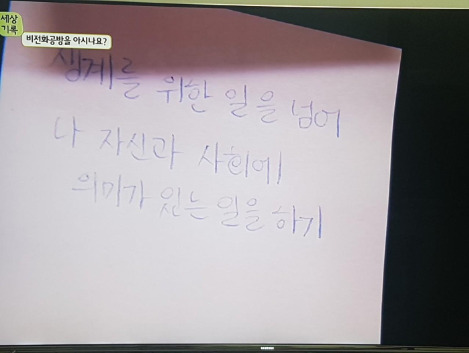 세상
기록
비전화공방을 아시나요?
생계를 위한 일을 넘어
나 자신과 사회에
의미가 있는 일을 하기